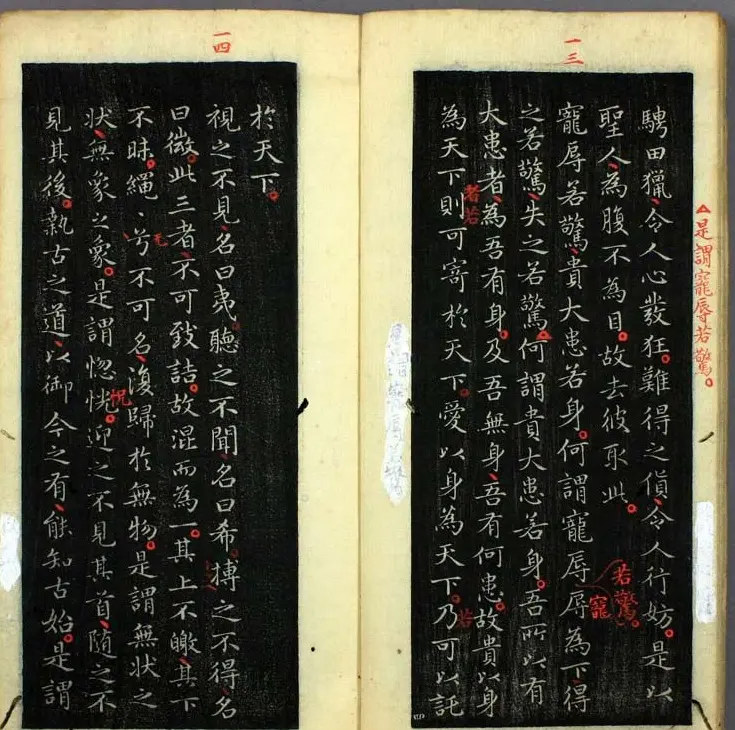 一三
△是謂寵辱若驚。
騁田獵、令人心發狂。難得之貨、令人行妨。是以
聖人、為腹不為目。故去彼取此。
寵辱若驚、貴大患若身。何謂寵辱辱為下、得
若驚。寵
之若驚、失之若驚。何謂貴大患若身。吾所以有
大患者、為吾有身。及吾無身、吾有何患。故貴以身
者若
為天下則可寄於天下。愛以身為天下。乃可以託
若
一四
於天下。
視之不見、名曰夷。聽之不聞、名曰希。搏之不得、名
曰微。此三者、不可致詰。故混而為一。其上不皦、其下
不昧。繩〻兮不可名、復歸於無物。是謂無狀之
狀、無象之象。是謂惚恍。迎之不見其首、隨之不
怳
見其後。執古之道、以御今之有、能知古始。是謂